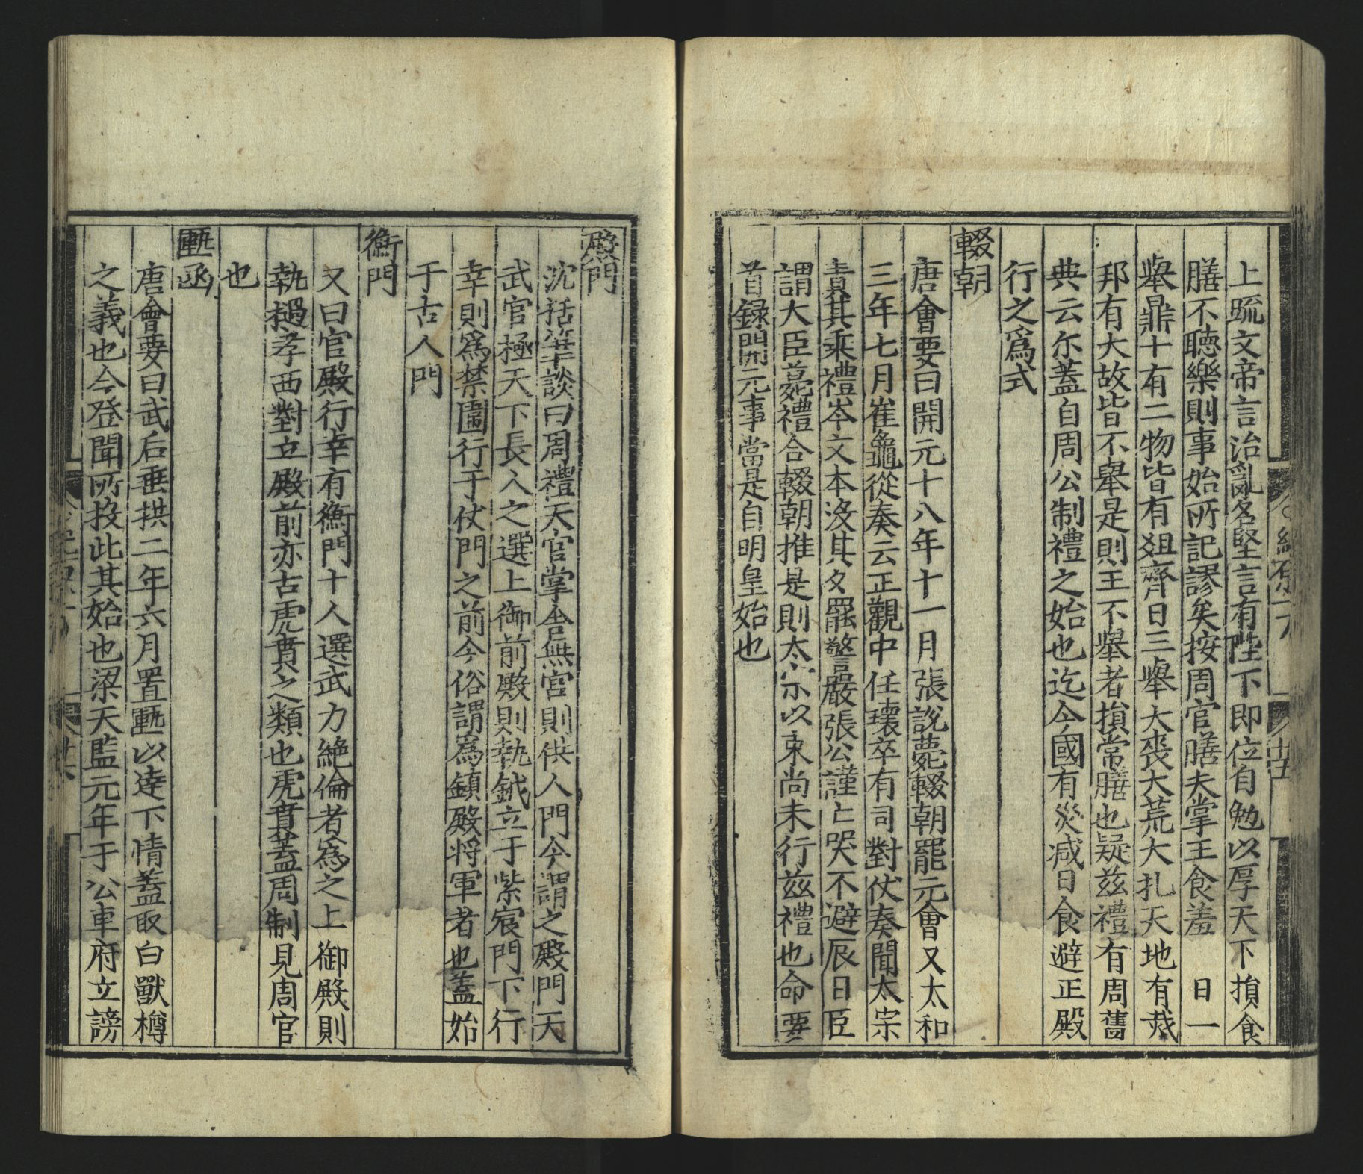 上疏文帝言治亂名堅言有陛下即位自勉以厚天下損食
膳不聽樂則事始所記謬矣按周官膳夫掌王食羞 日一
舉鼎十有二物皆有爼齊日三舉大喪大荒大札天地有烖
邦有大故皆不舉是則王不舉者損常膳也疑兹禮有周舊
典云尔蓋自周公制禮之始也迄今國有災减日食避正殿
行之爲式
輟朝
唐會要曰開元十八年十一月張說薨輟朝罷元會又太和
三年七月崔龜從奏云正觀中任瓌卒有司對仗奏聞太宗
責其乖禮岑文本沒其夕罷警嚴張公謹亡哭不避辰日臣
謂大臣薨禮合輟朝推是則太宗以來尚未行兹禮也命要
首録開元事當是自明皇始也
殿門
沈括筆談曰周禮天官掌舍無宮則供人門今謂之殿門天
武官極天下長人之選上御前殿則執鉞立于紫宸門下行
幸則爲禁圍行于仗門之前今俗謂爲鎮殿将軍者也蓋始
于古人門
衡門
又曰官殿行幸有衡門十人選武力絶倫者爲之上御殿則
執檛孝西對立殿前亦古虎賁之類也虎賁蓋周制見周官
也
匭函
唐會要曰武后垂拱二年六月置匭以達下情蓋取白獸樽
之義也今登聞所投此其始也梁天監元年于公車府立謗